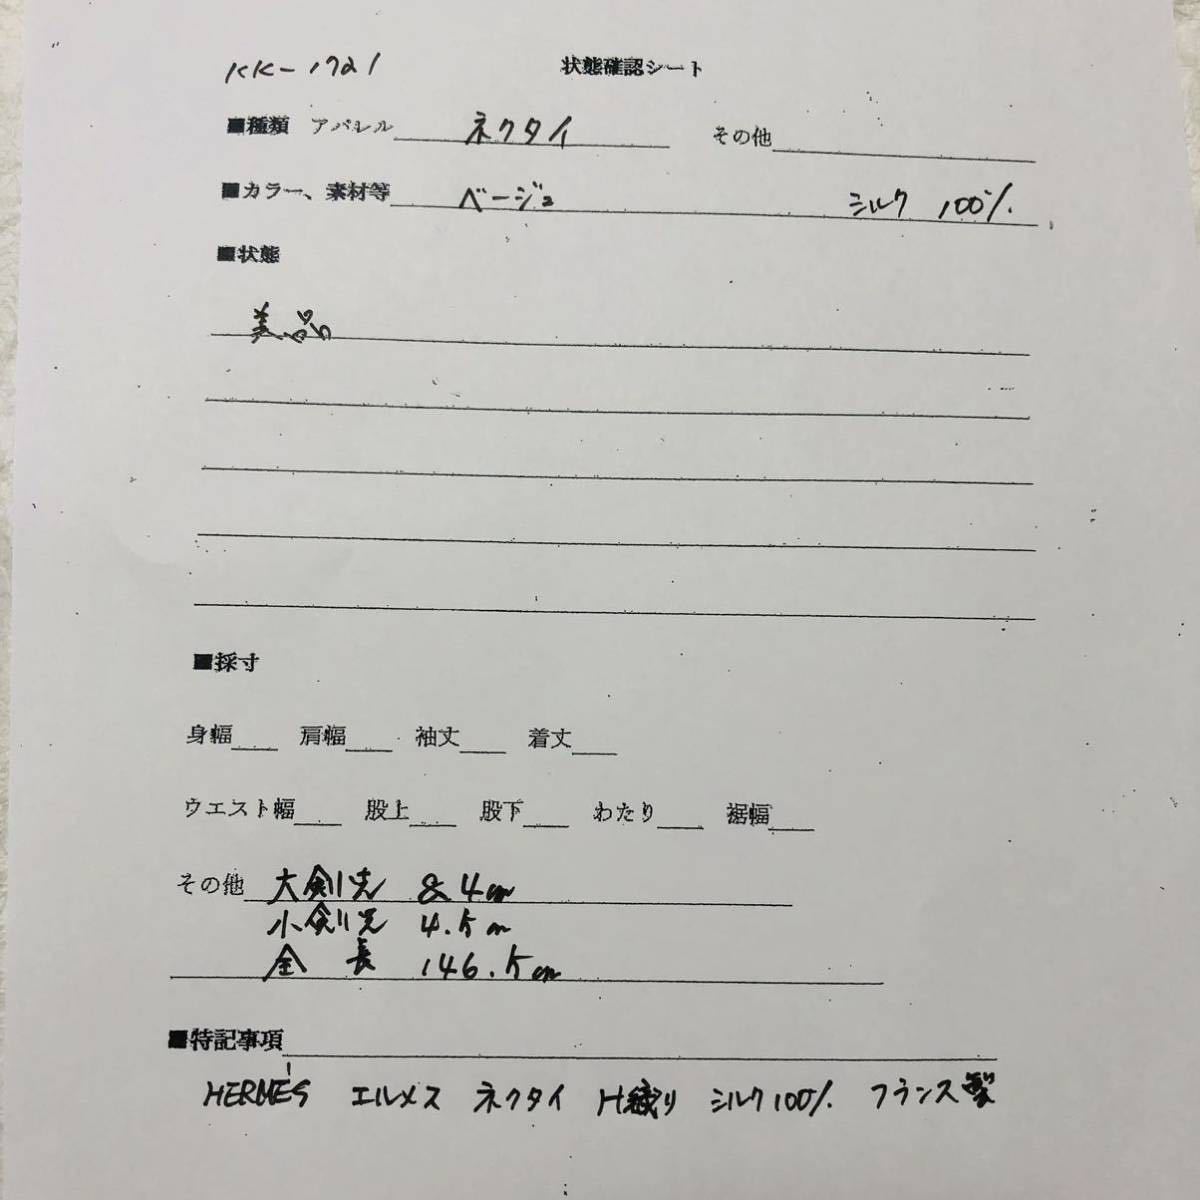 KK-1721 状態確認シート
■種類 アパレル ネクタイ その他
■カラー、素材等 ベージュ シルク 100%
■状態
美品
■採寸
身幅 肩幅 袖丈 着丈
ウエスト幅 股上 股下 わたり 裾幅
その他 大剣先 8.4cm
小剣先 4.5cm
全長 146.5cm
■特記事項
HERMÈS エルメス ネクタイ H織り シルク100% フランス製